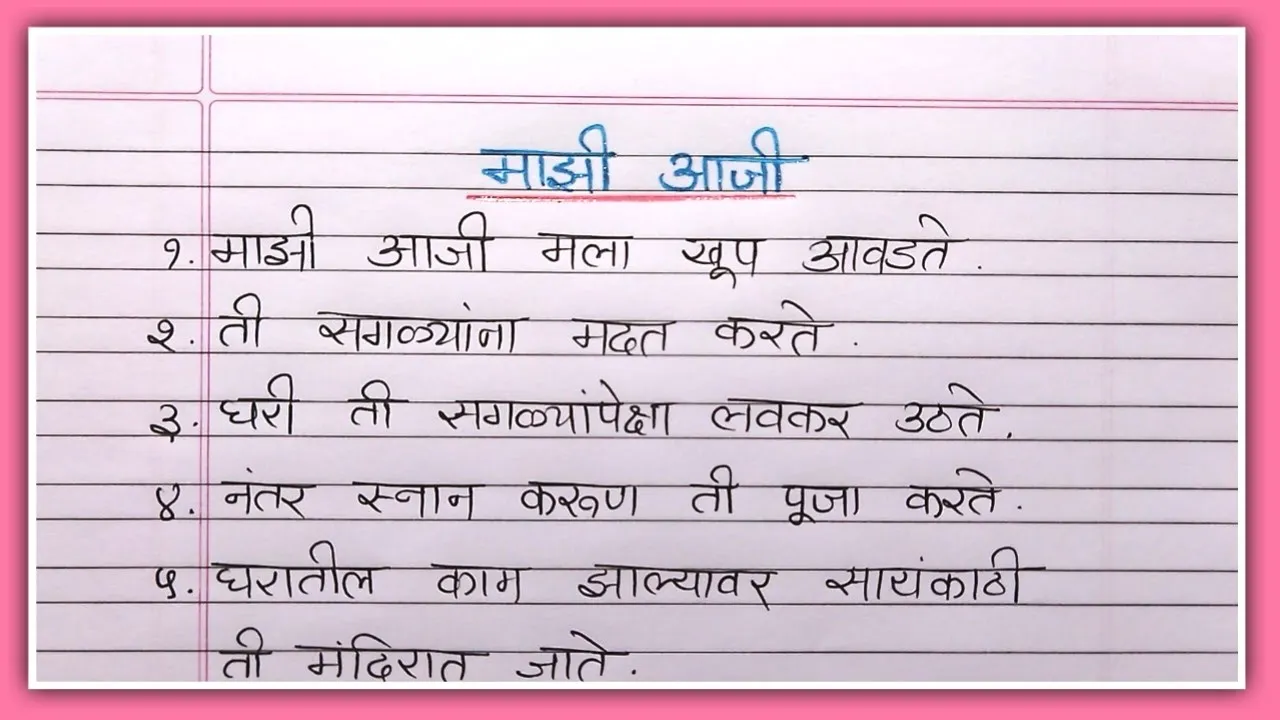 माझी आजी
१. माझी आजी मला खूप आवडते.
२. ती सगळ्यांना मदत करते.
३. घरी ती सगळ्यांपेक्षा लवकर उठते.
४. नंतर स्नान करुण ती पूजा करते.
५. घरातील काम झाल्यावर सायंकाळी
ती मंदिरात जाते.